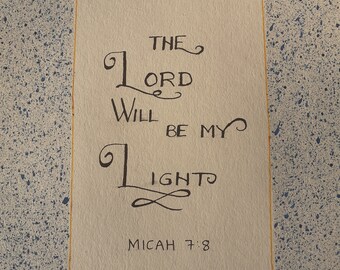 THE
LORD
WILL
BE MY
LIGHT
MICAH 7:8